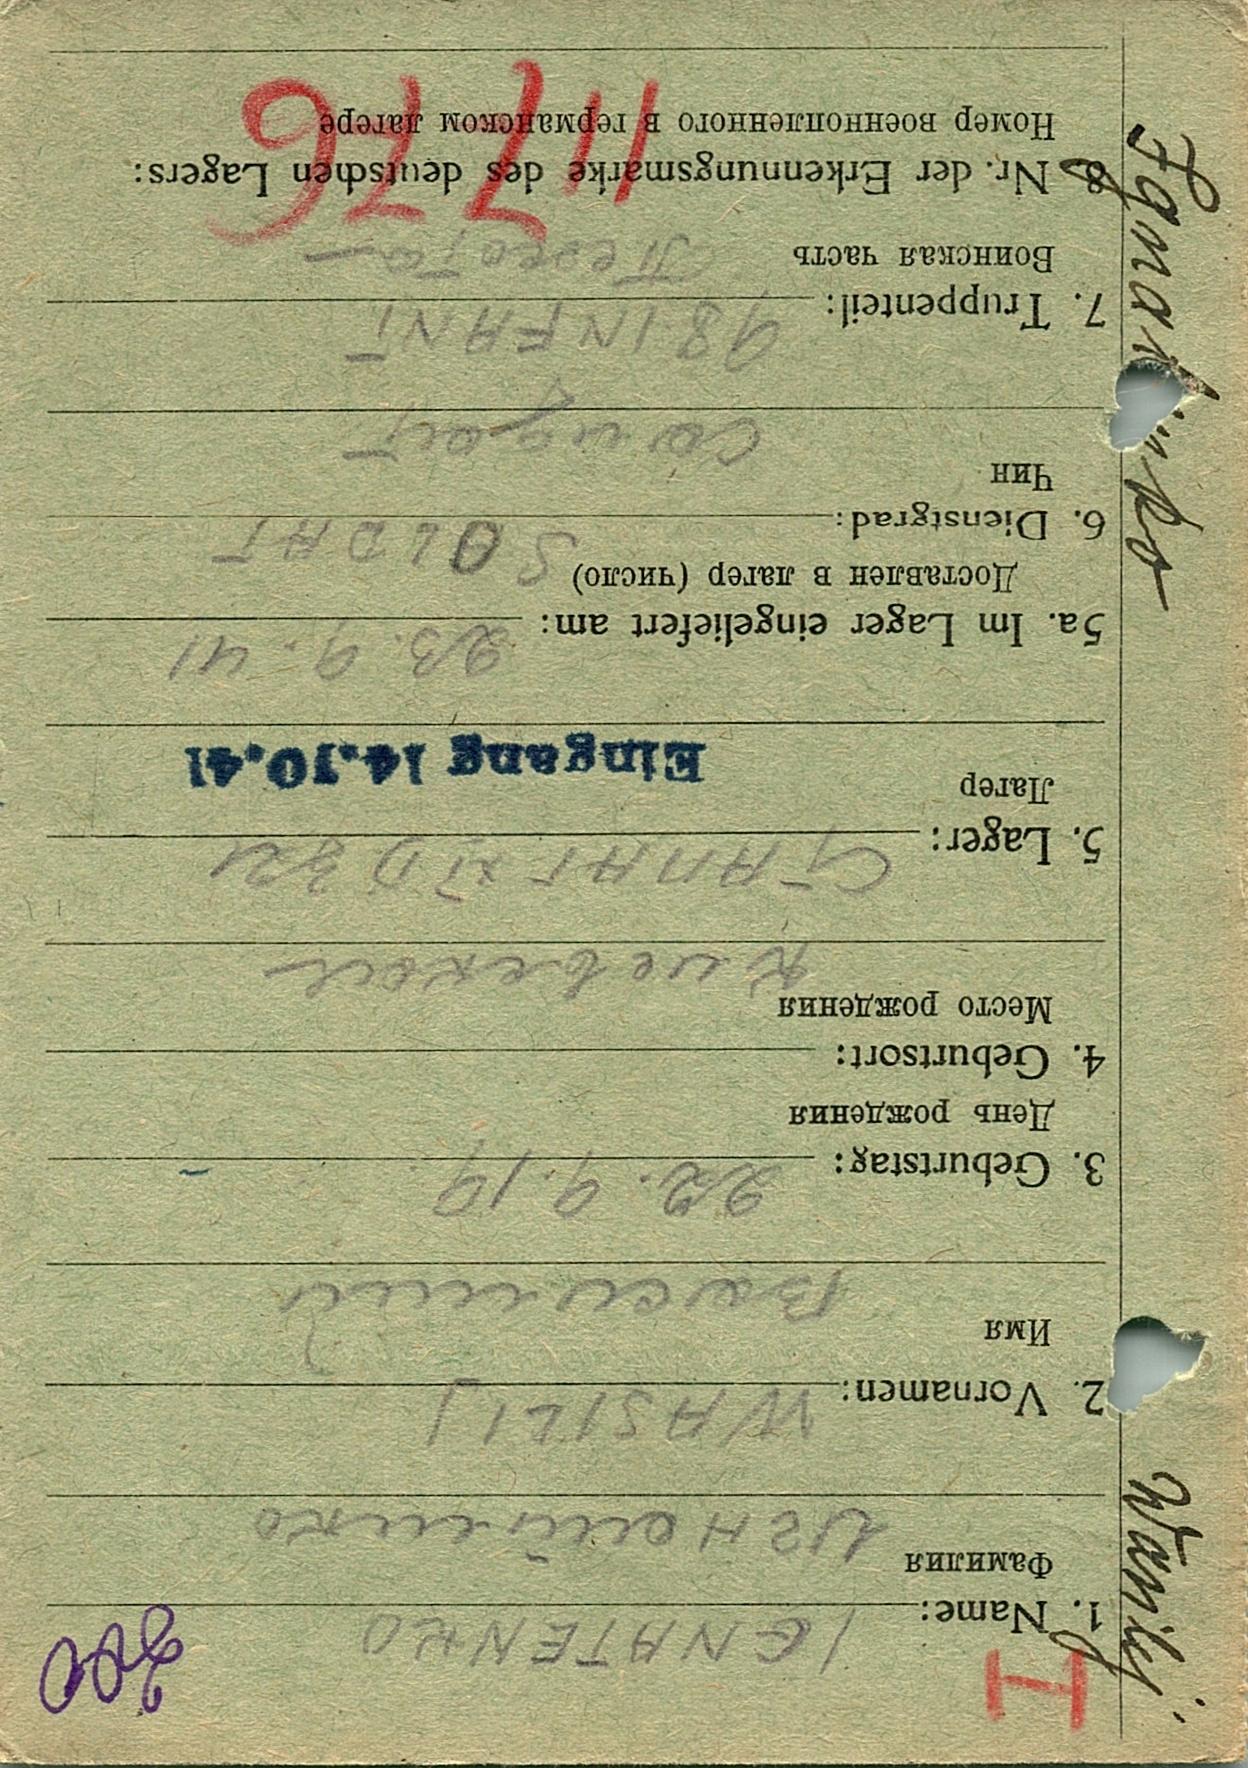 I
200
1. Name: IGNATENKO
Фамилия Игнатенко
2. Vornamen: WASILIJ
Имя Василий
3. Geburtstag: 22. 9. 19
День рождения
4. Geburtsort:
Место рождения
5. Lager: XI D 321
Лагер
Eingang 14.10.41
5a. Im Lager eingeliefert am: 23. 9. 41
Доставлен в лагер (число)
6. Dienstgrad: SOLDAT
Чин солдат
7. Truppenteil: 98 INFANT
Воинская часть Пехота
8 Nr. der Erkennungsmarke des deutschen Lagers:
Номер военнопленного в германском лагере
11776
Wasilij